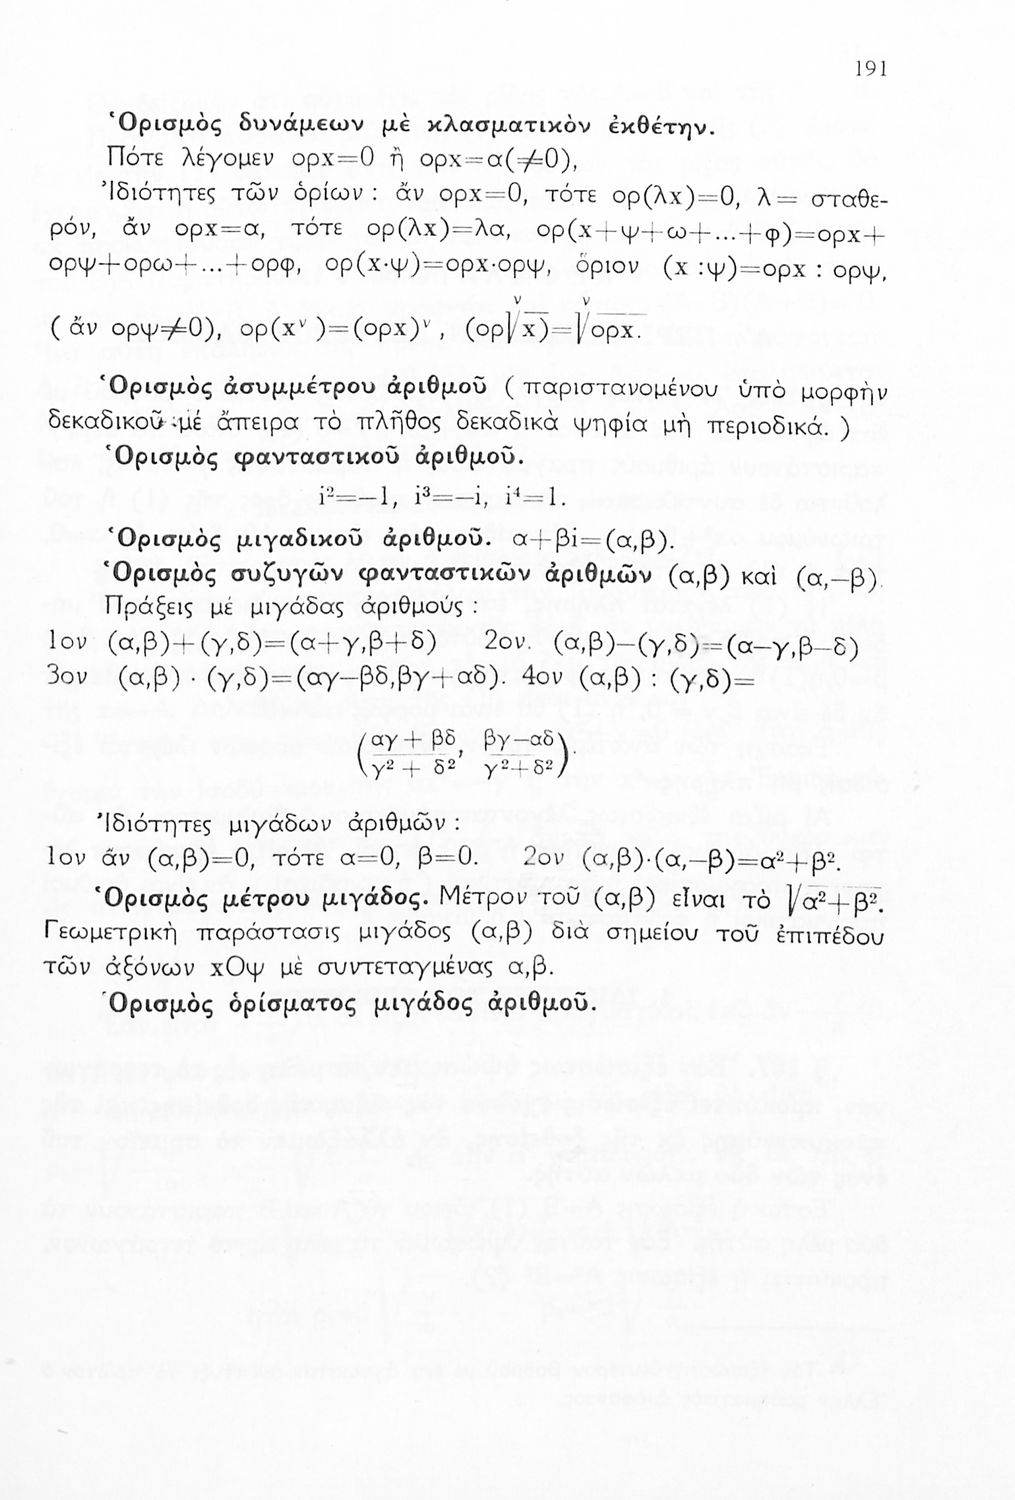 191
Ὁρισμὸς δυνάμεων μὲ κλασματικὸν ἐκθέτην.
Πότε λέγομεν ορχ=0 ἢ ορχ=α(≠0),
Ἰδιότητες τῶν ὁρίων : ἂν ορχ=0, τότε ορ(λχ)=0, λ= σταθε-
ρόν, ἂν ορχ=α, τότε ορ(λχ)=λα, ορ(χ+ψ+ω+...+φ)=ορχ+
ορψ+ορω+...+ορφ, ορ(χ·ψ)=ορχ·ορψ, ὅριον (χ :ψ)=ορχ : ορψ,
( ἂν ορψ≠0), ορ(χᵛ )=(ορχ)ᵛ , (ορᵛ√χ)=ᵛ√ορχ.
Ὁρισμὸς ἀσυμμέτρου ἀριθμοῦ ( παριστανομένου ὑπὸ μορφὴν
δεκαδικοῦ μέ ἄπειρα τὸ πλῆθος δεκαδικὰ ψηφία μὴ περιοδικά. )
Ὁρισμὸς φανταστικοῦ ἀριθμοῦ.
i²=−1, i³=−i, i⁴=1.
Ὁρισμὸς μιγαδικοῦ ἀριθμοῦ. α+βi=(α,β).
Ὁρισμὸς συζυγῶν φανταστικῶν ἀριθμῶν (α,β) καὶ (α,−β).
Πράξεις μέ μιγάδας ἀριθμούς :
1ον (α,β)+(γ,δ)=(α+γ,β+δ) 2ον. (α,β)−(γ,δ)=(α−γ,β−δ)
3ον (α,β) · (γ,δ)=(αγ−βδ,βγ+αδ). 4ον (α,β) : (γ,δ)=
(αγ + βδ/γ² + δ², βγ−αδ/γ²+δ²).
Ἰδιότητες μιγάδων ἀριθμῶν :
1ον ἄν (α,β)=0, τότε α=0, β=0. 2ον (α,β)·(α,−β)=α²+β².
Ὁρισμὸς μέτρου μιγάδος. Μέτρον τοῦ (α,β) εἶναι τὸ √α²+β².
Γεωμετρικὴ παράστασις μιγάδος (α,β) διὰ σημείου τοῦ ἐπιπέδου
τῶν ἀξόνων χΟψ μὲ συντεταγμένας α,β.
Ὁρισμὸς ὁρίσματος μιγάδος ἀριθμοῦ.